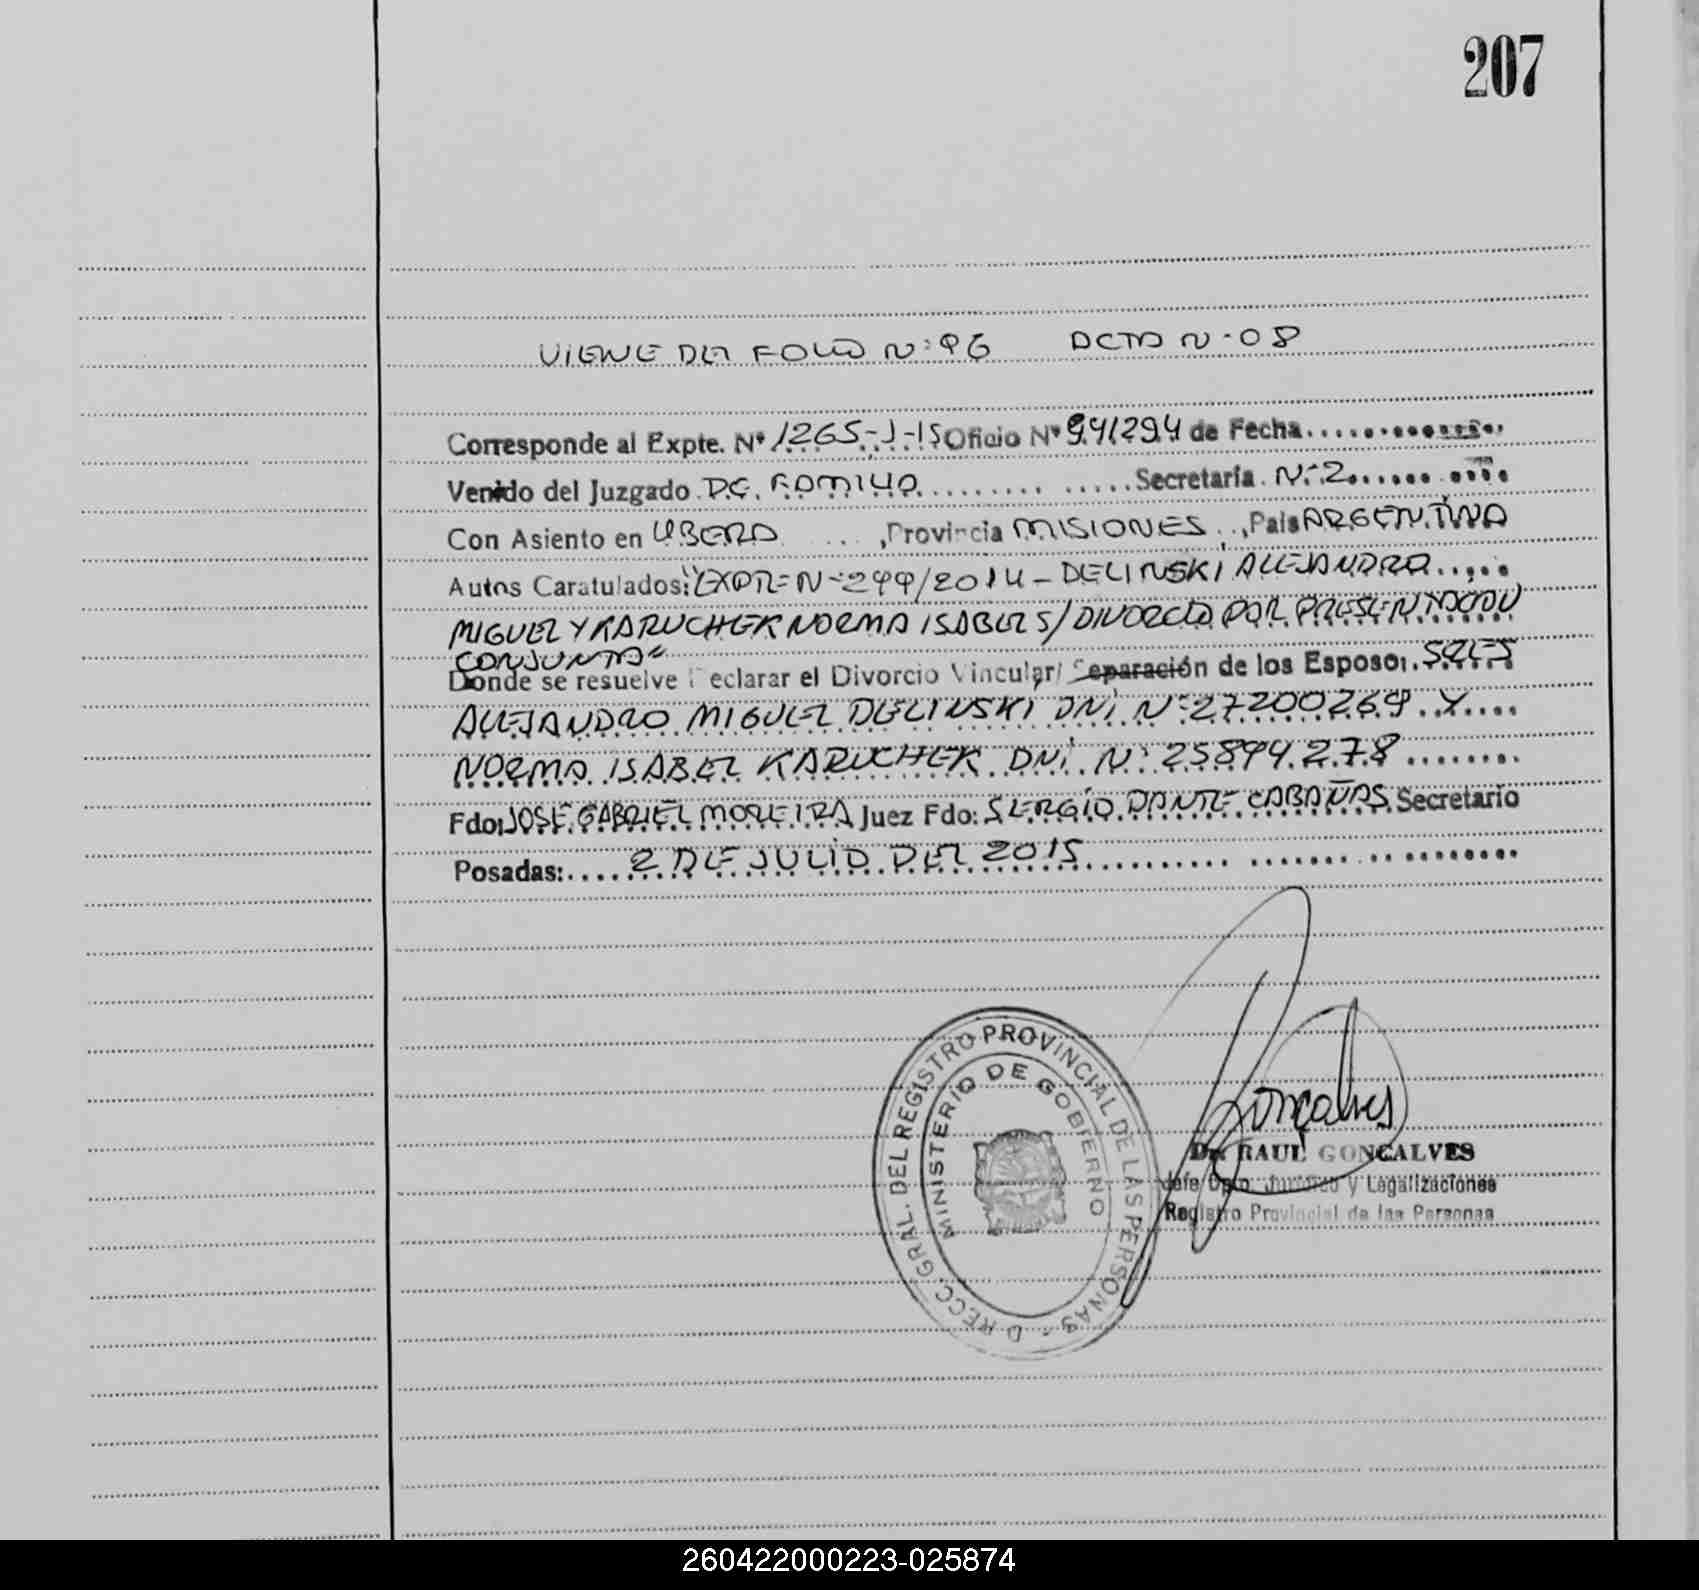 207
VIENE DEL FOLIO N: 96 ACTA N-08
Corresponde al Expte. Nº 1265-J-15 Oficio Nº 941294 de Fecha
Venido del Juzgado DE FAMILIA Secretaría N-2
Con Asiento en OBERA, Provincia MISIONES, País ARGENTINA
Autos Caratulados: "EXPTE N-299/2014 - DELINSKI ALEJANDRO
MIGUEL Y KARUCHEK NORMA ISABEL S/ DIVORCIO POR PRESENTACION
CONJUNTA"
Donde se resuelve Declarar el Divorcio Vincular/ Separación de los Esposos, SRES
ALEJANDRO MIGUEL DELINSKI DNI N-27200269 Y
NORMA ISABEL KARUCHEK DNI N: 25894.278
Fdo: JOSE GABRIEL MOREIRA Juez Fdo: SERGIO DANTE CABAÑAS Secretario
Posadas: 2 DE JULIO DEL 2015
DIRECC. GRAL. DEL REGISTRO PROVINCIAL DE LAS PERSONAS -
MINISTERIO DE GOBIERNO
Gonçalves
Dr. RAUL GONCALVES
Jefe Dpto. Jurídico y Legalizaciones
Registro Provincial de las Personas
260422000223-025874